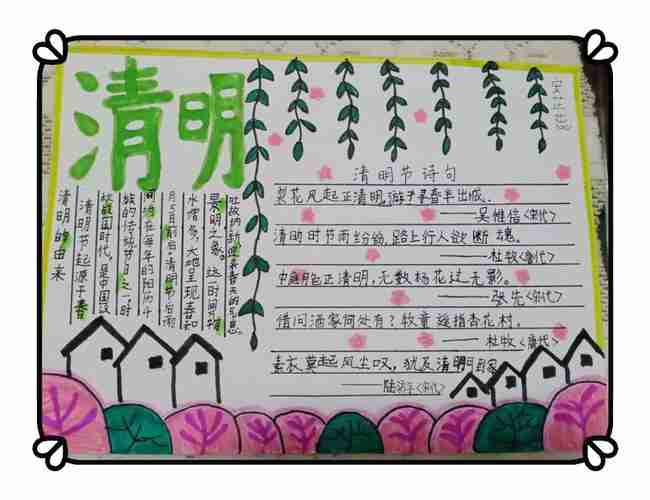 清明
清明的由来
清明节起源于春
秋战国时代,是中国汉
族的传统节日之一,时
间约在每年的阳历4
月5日前后。清明节后雨
水增多,大地呈现春和
景明之象。这一时间万物
清明节诗句
梨花风起正清明,游子寻春半出城。
——吴惟信<宋代>
清明时节雨纷纷,路上行人欲断魂。
——杜牧<唐代>
中庭月色正清明,无数杨花过无影。
——张先<宋代>
借问酒家何处有?牧童遥指杏花村。
——杜牧<唐代>
素衣莫起风尘叹,犹及清明可到家
——陆游<宋代>